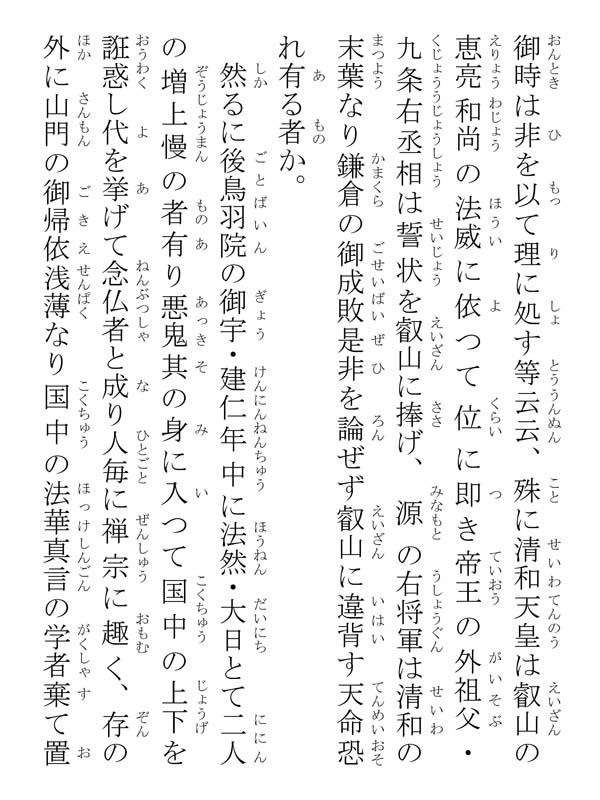 御時は非を以て理に処す等云云、殊に清和天皇は叡山の
恵亮和尚の法威に依つて位に即き帝王の外祖父・
九条右丞相は誓状を叡山に捧げ、源の右将軍は清和の
末葉なり鎌倉の御成敗是非を論ぜず叡山に違背す天命恐
れ有る者か。
然るに後鳥羽院の御宇・建仁年中に法然・大日とて二人
の増上慢の者有り悪鬼其の身に入つて国中の上下を
誑惑し代を挙げて念仏者と成り人毎に禅宗に趣く、存の
外に山門の御帰依浅薄なり国中の法華真言の学者棄て置